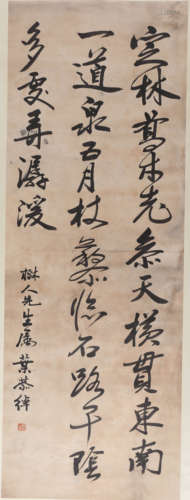 定林喬木老參天橫貫東南
一道泉五月杖藜臨石路午陰
多處弄潺湲
人先生属 葉恭綽